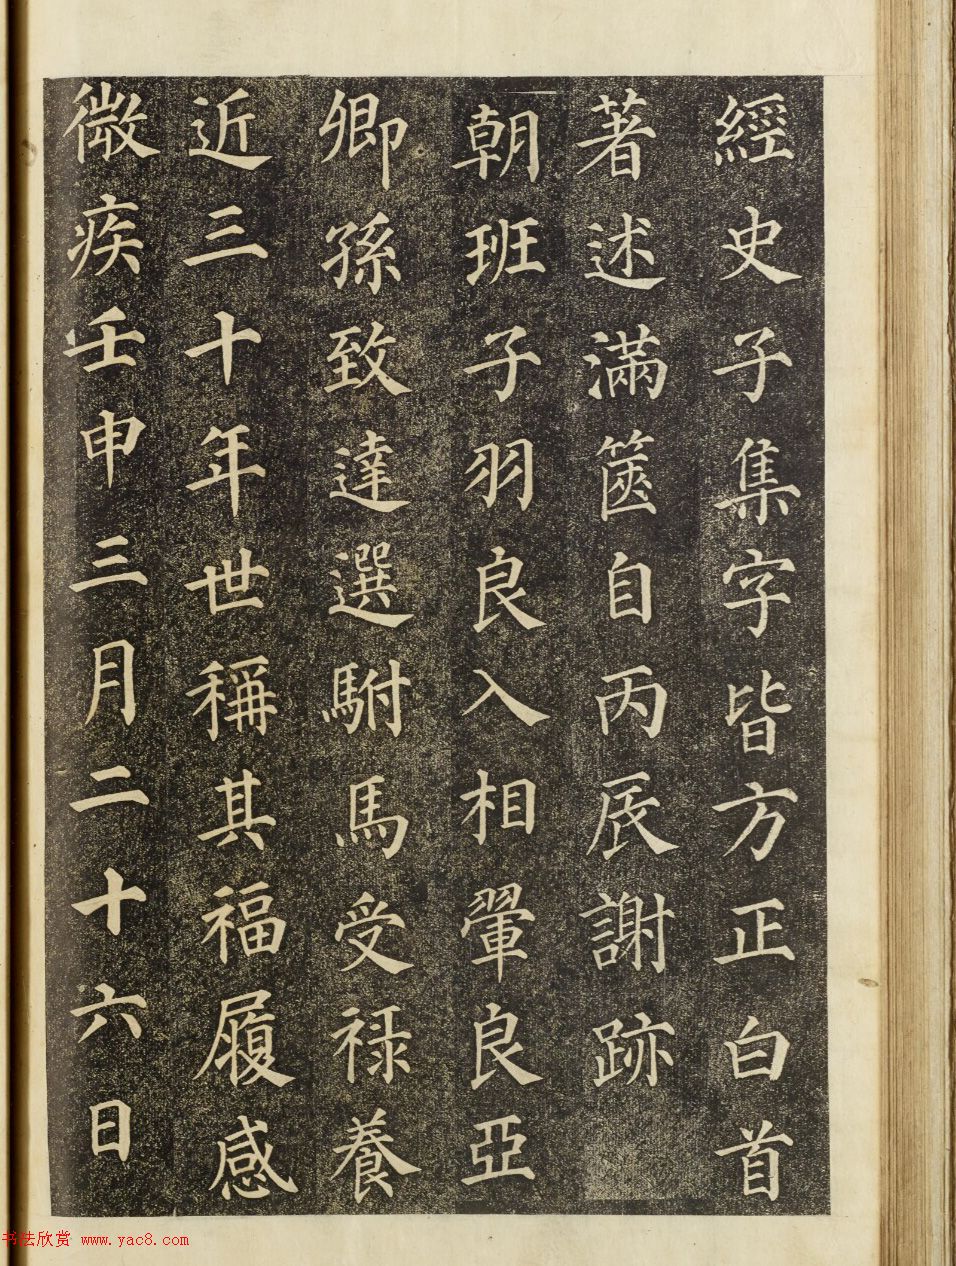 經史子集字皆方正白首
著述滿篋自丙辰謝跡
朝班子羽良入相翬良亞
卿孫致達選駙馬受祿養
近三十年世稱其福履感
微疾壬申三月二十六日
书法欣赏 www.yac8.com